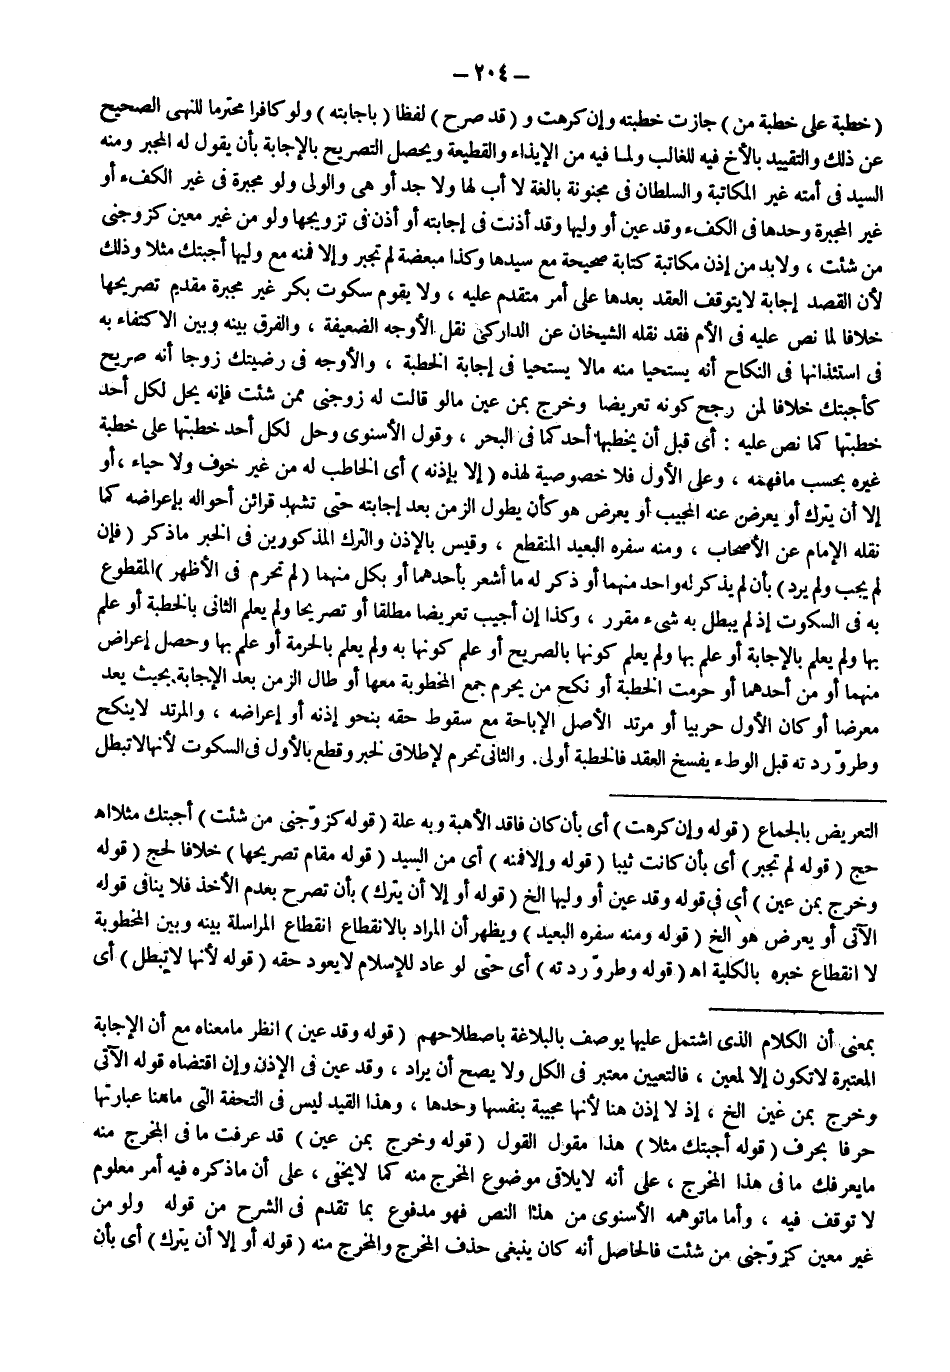 – ٢٠٤ –
( خطبة على خطبة من ) جازت خطبته وإن كرهت و ( قد صرح ) لفظا ( باجابته ) ولو كافرا محترما للنهى الصحيح
عن ذلك والتقييد بالأخ فيه للغالب ولما فيه من الإيذاء والقطيعة ويحصل التصريح بالإجابة بأن يقول له المجبر ومنه
السيد فى أمته غير المكاتبة والسلطان فى مجنونة بالغة لا أب لها ولا جد أو هى والولى ولو مجبرة فى غير الكفء أو
غير المجبرة وحدها فى الكفء وقد عين أو وليها وقد أذنت فى إجابته أو أذن فى تزويجها ولو من غير معين كزوجنى
من شئت ، ولابد من إذن مكاتبة كتابة صحيحة مع سيدها وكذا مبعضة لم تجبر وإلا فمنه مع وليها أجبتك مثلا وذلك
لأن القصد إجابة لايتوقف العقد بعدها على أمر متقدم عليه ، ولا يقوم سكوت بكر غير مجبرة مقديم تصريحها
خلافا لما نص عليه فى الأم فقد نقله الشيخان عن الداركى نقل الأوجه الضعيفة ، والفرق بينه وبين الاكتفاء به
فى استئذانها فى النكاح أنه يستحيا منه مالا يستحيا فى إجابة الخطبة ، والأوجه فى رضيتك زوجا أنه صريح
كأجبتك خلافا لمن رجح كونه تعريضا وخرج بمن عين مالو قالت له زوجنى ممن شئت فإنه يحل لكل أحد
خطبتها كما نص عليه : أى قبل أن يخطبها أحد كما فى البحر ، وقول الأسنوى وحل لكل أحد خطبتها على خطبة
غيره بحسب مافهمه ، وعلى الأول فلا خصوصية لهذه ( إلا بإذنه ) أى الخاطب له من غير خوف ولا حياء ، أو
إلا أن يترك أو يعرض عنه المجيب أو يعرض هو كأن يطول الزمن بعد إجابته حتى تشهد قرائن أحواله بإعراضه كما
نقله الإمام عن الأصحاب ، ومنه سفره البعيد المنقطع ، وقيس بالإذن والترك المذكورين فى الخبر ماذكر ( فإن
لم يجب ولم يرد ) بأن لم يذكر له واحد منهما أو ذكر له ما أشعر بأحدهما أو بكل منهما ( لم تحرم فى الأظهر ) المقطوع
به فى السكوت إذ لم يبطل به شىء مقرر ، وكذا إن أجيب تعريضا مطلقا أو تصريحا ولم يعلم الثانى بالخطبة أو علم
بها ولم يعلم بالإجابة أو علم بها ولم يعلم كونها بالصريح أو علم كونها به ولم يعلم بالحرمة أو علم بها وحصل إعراض
منهما أو من أحدهما أو حرمت الخطبة أو نكح من يحرم جمع المخطوبة معها أو طال الزمن بعد الإجابة بحيث يعد
معرضا أو كان الأول حربيا أو مرتد الأصل الإباحة مع سقوط حقه بنحو إذنه أو إعراضه ، والمرتد لاينكح
وطروّ ردته قبل الوطء يفسخ العقد فالخطبة أولى. والثانى تحرم لإطلاق الخبر وقطع بالأول فى السكوت لأنها لاتبطل
التعريض بالجماع ( قوله وإن كرهت ) أى بأن كان فاقد الأهبة وبه علة ( قوله كزوّجنى من شئت ) أجبتك مثلا اه
حج ( قوله لم تجبر ) أى بأن كانت ثيبا ( قوله وإلا فمنه ) أى من السيد ( قوله مقام تصريحها ) خلافا لحج ( قوله
وخرج بمن عين ) أى فى قوله وقد عين أو وليها الخ ( قوله أو إلا أن يترك ) بأن تصرح بعدم الأخذ فلا ينافى قوله
الآتى أو يعرض هو الخ ( قوله ومنه سفره البعيد ) ويظهر أن المراد بالانقطاع انقطاع المراسلة بينه وبين المخطوبة
لا انقطاع خبره بالكلية اه ( قوله وطروّ ردته ) أى حتى لو عاد للإسلام لايعود حقه ( قوله لأنها لاتبطل ) أى
بمعنى أن الكلام الذى اشتمل عليها يوصف بالبلاغة باصطلاحهم ( قوله وقد عين ) انظر مامعناه مع أن الإجابة
المعتبرة لاتكون إلا لمعين ، فالتعيين معتبر فى الكل ولا يصح أن يراد ، وقد عين فى الإذن وإن اقتضاه قوله الآتى
وخرج بمن عين الخ ، إذ لا إذن هنا لأنها مجيبة بنفسها وحدها ، وهذا القيد ليس فى التحفة التى ماهنا عبارتها
حرفا بحرف ( قوله أجبتك مثلا ) هذا مقول القول ( قوله وخرج بمن عين ) قد عرفت ما فى المخرج منه
مايعرفك ما فى هذا المخرج ، على أنه لايلاقى موضوع المخرج منه كما لايخفى ، على أن ماذكره فيه أمر معلوم
لا توقف فيه ، وأما ماتوهمه الأسنوى من هذا النص فهو مدفوع بما تقدم فى الشرح من قوله ولو من
غير معين كزوّجنى من شئت فالحاصل أنه كان ينبغى حذف المخرج والمخرج منه ( قوله أو إلا أن يترك ) أى بأن